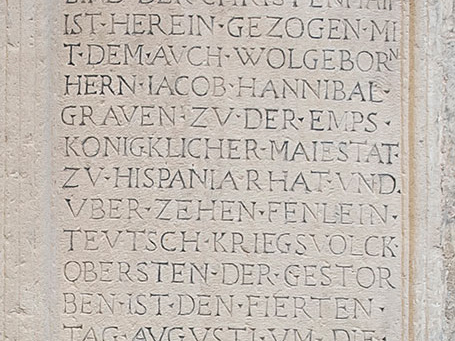 EIND DER CHRISTENHAIT
IST HEREIN GEZOGEN MI
T·DEM·AVCH WOLGEBORN
HERN·IACOB·HANNIBAL·
GRAVEN·ZV·DER·EMPS·
KONIGKLICHER·MAIESTAT
ZV·HISPANIA·RHAT·VND.
VBER·ZEHEN·FENLEIN·
TEVTSCH·KRIEGSVOLCK·
OBERSTEN·DER·GESTOR
BEN·IST·DEN·FIERTEN·
TAG·AVGVSTI·VM·DIE·